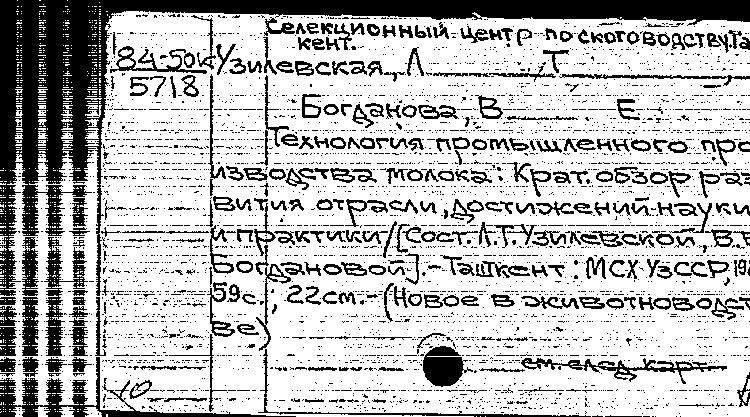 Селекционный центр по скотоводству, Та
кент.
84-50к
5718
Узилевская, Л Т ,
Богданова, В Е
Технология промышленного про
изводства молока: Крат. обзор раз
вития отрасли, достижений науки
и практики/[Сост. Л.Т. Узилевской, В.Е.
Богдановой]. - Ташкент: МСХ УзССР, 19
59с.; 22см. - (Новое в животноводст
ве)
см. след. карт.
10